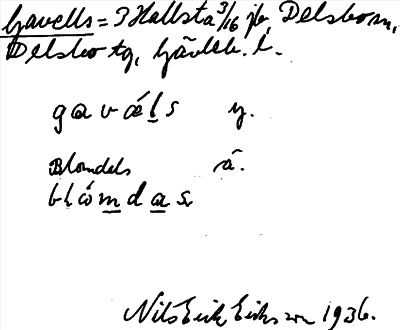 Gavells = 3 Hallsta 3/16 jb, Delsbo sn,
Delsbo tg, Gävleb. l.
gavál̲s y.
Blomdels ä.
blóm̲da̲s
Nils Erik Eriksson 1936.